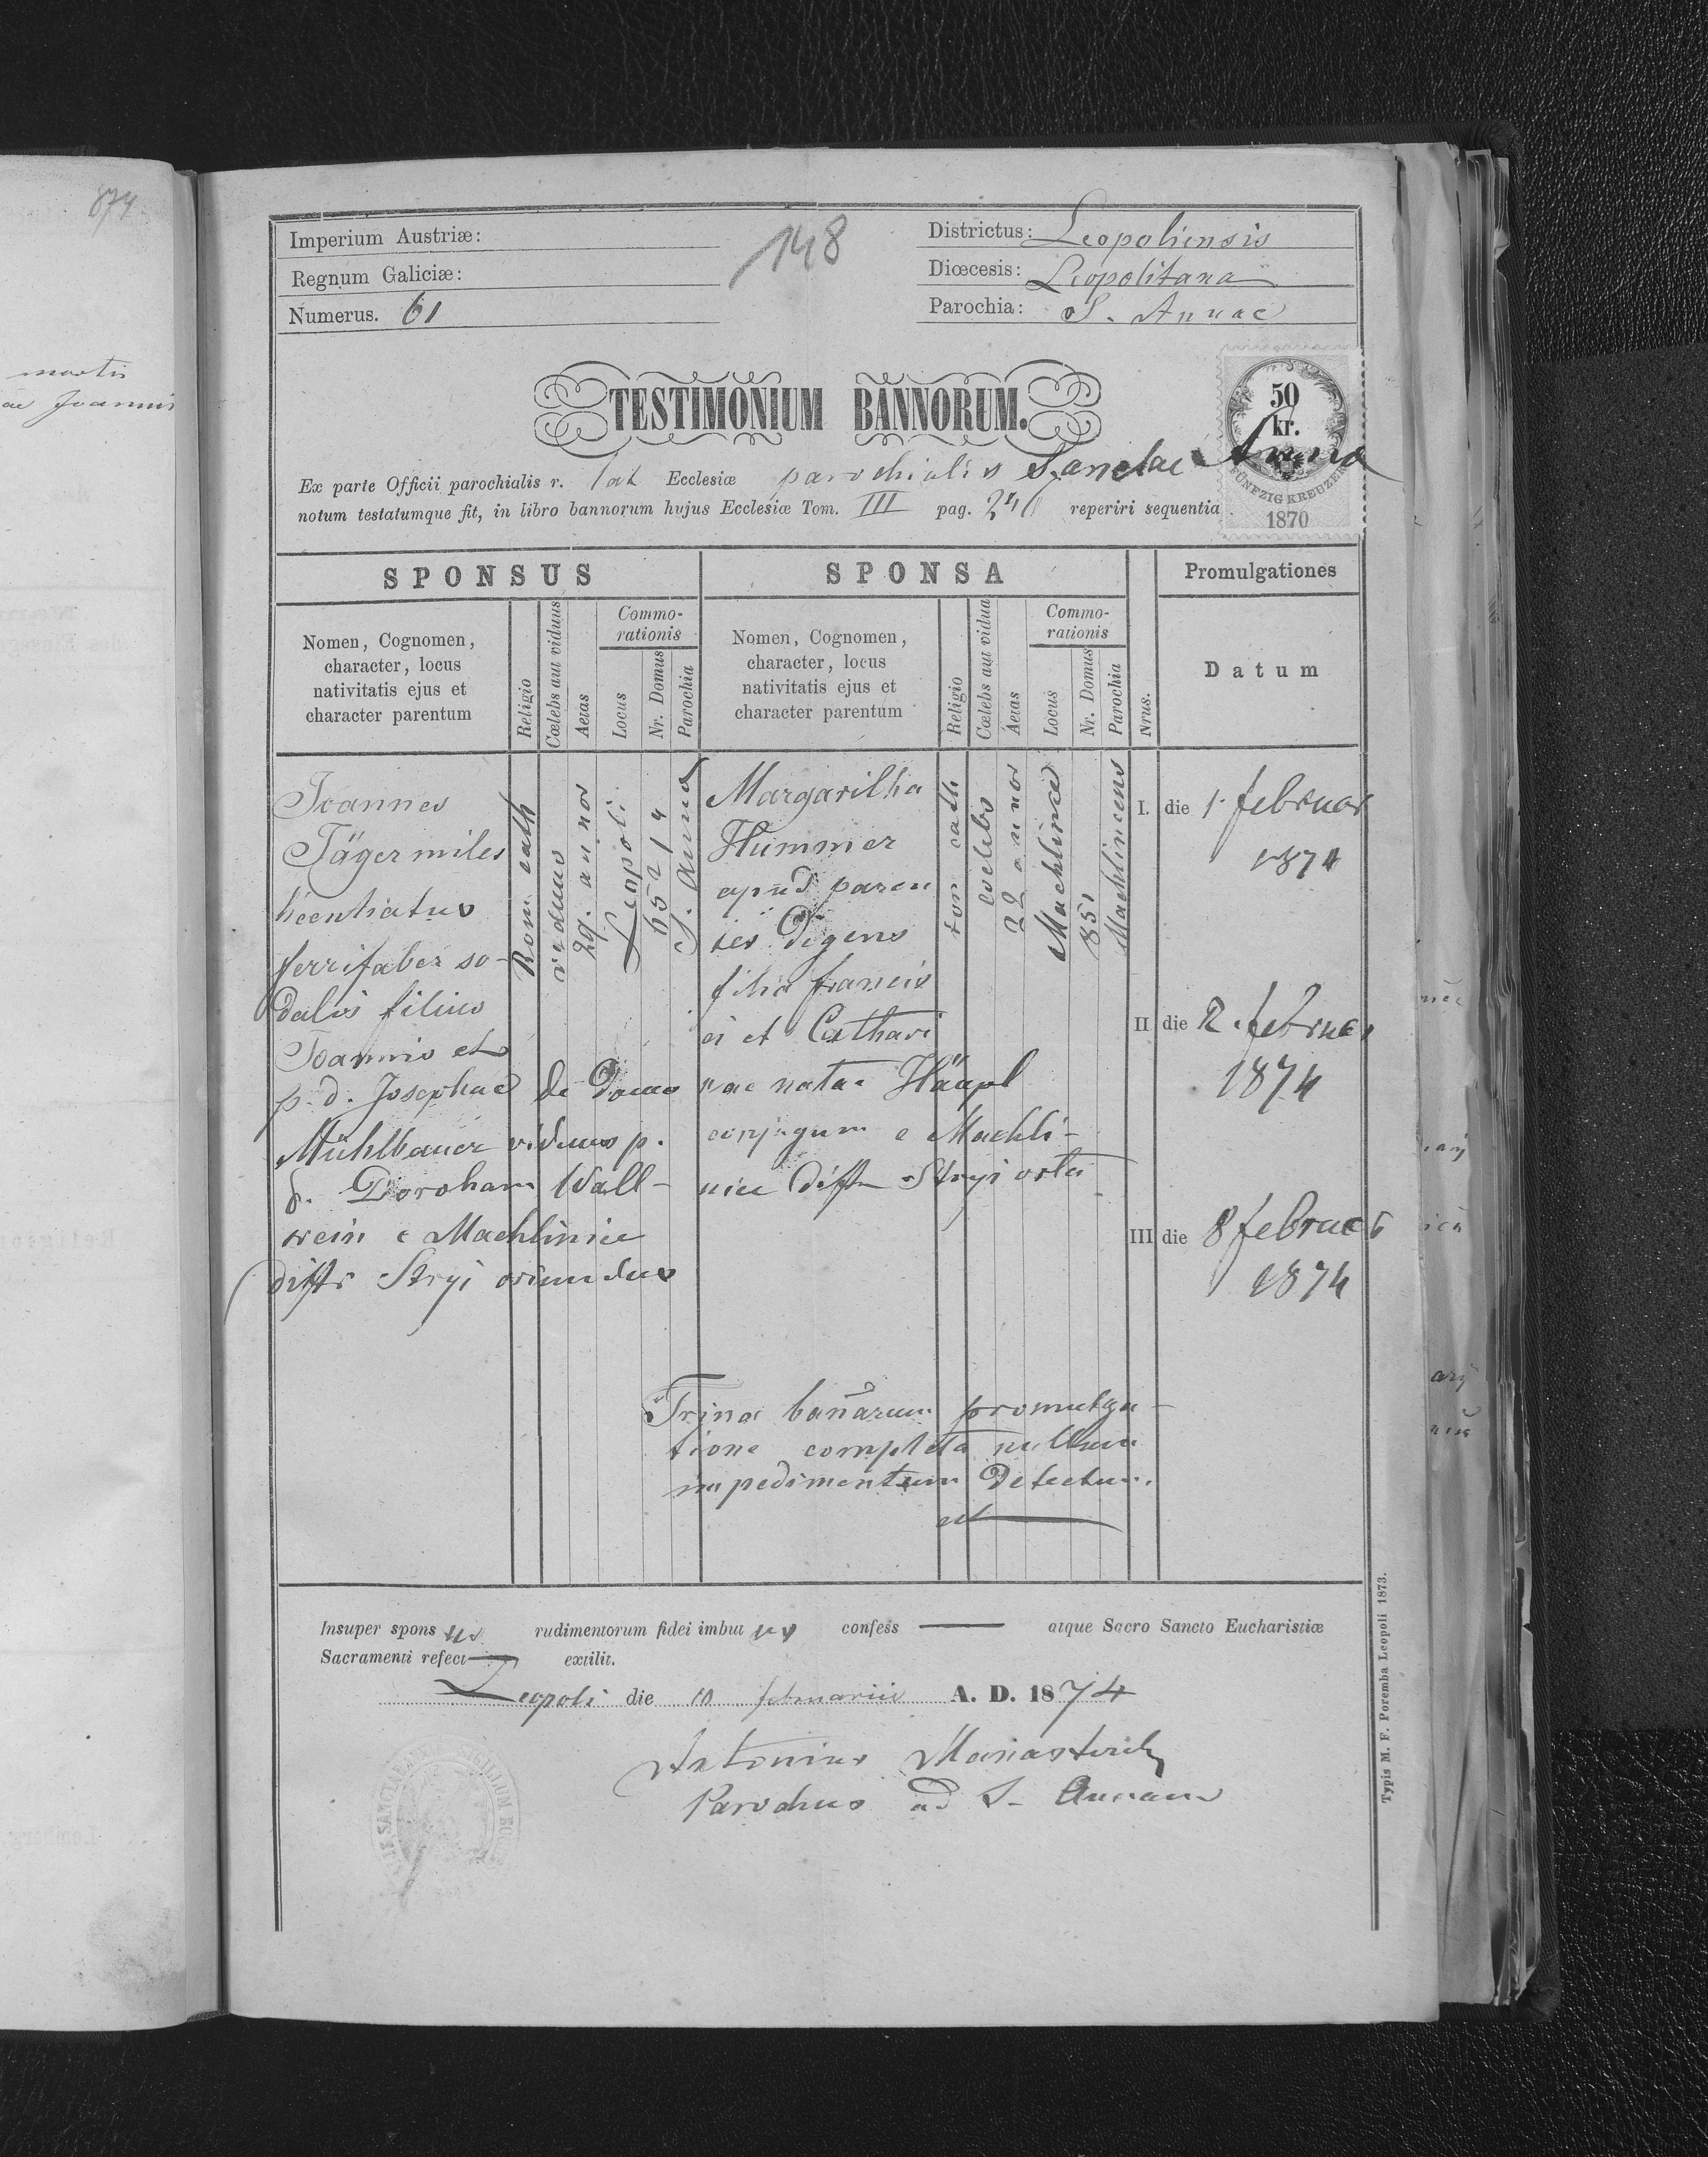 874
martis
ae Joannis
Imperium Austriæ:
Regnum Galiciæ:
Numerus. 61
148
Districtus: Leopoliensis
Diœcesis: Leopolitana
Parochia: S. Annae
TESTIMONIUM BANNORUM.
50
kr.
FÜNFZIG KREUZER
1870
Ex parte Officii parochialis r. lat Ecclesiæ parochialis Sanctae Annae
notum testatumque fit, in libro bannorum hujus Ecclesiæ Tom. III pag. reperiri sequentia
SPONSUS
SPONSA
Promulgationes
Nomen, Cognomen,
character, locus
nativitatis ejus et
character parentum
Religio
Cœlebs aut viduus
Aetas
Commo-
rationis
Locus
Nr. Domus
Parochia
Nomen, Cognomen,
character, locus
nativitatis ejus et
character parentum
Religio
Cœlebs aut vidua
Aetas
Commo-
rationis
Locus
Nr. Domus
Parochia
Nrus.
Datum
Joannes
Jäger miles
licentiatus
ferrifaber so-
dalis filius
Joannis et
p. d. Josephae de Domo
Mühlbauer viduus p.
d. Dorotham Wall-
wein e Machlinie
distr Stryi oriundus
Rom cath
viduus
29. annor
Leopoli
S. Annae
Margaritha
Hummer
apud paren
tes Degens
filia Francis
ci et Cathari
nae natae Häupl
conjugum e Machli-
nice distr Stryi orta
rom cath
coelebs
22 annor
Machlince
85
Machlincens
I. die 1. februar
1874
II die 2. februar
1874
III die 8 februar
1874
Trina bañarum promulga-
tione completa nullum
impedimentum Detectum
est
Insuper spons us rudimentorum fidei imbut us confess atque Sacro Sancto Eucharistiæ
Sacramenti refect extilit.
Leopoli die 10 februarii A. D. 1874
Antonius Manastyrski
Parochus ad S. Annam
Typis M. F. Poremba Leopoli 1873.